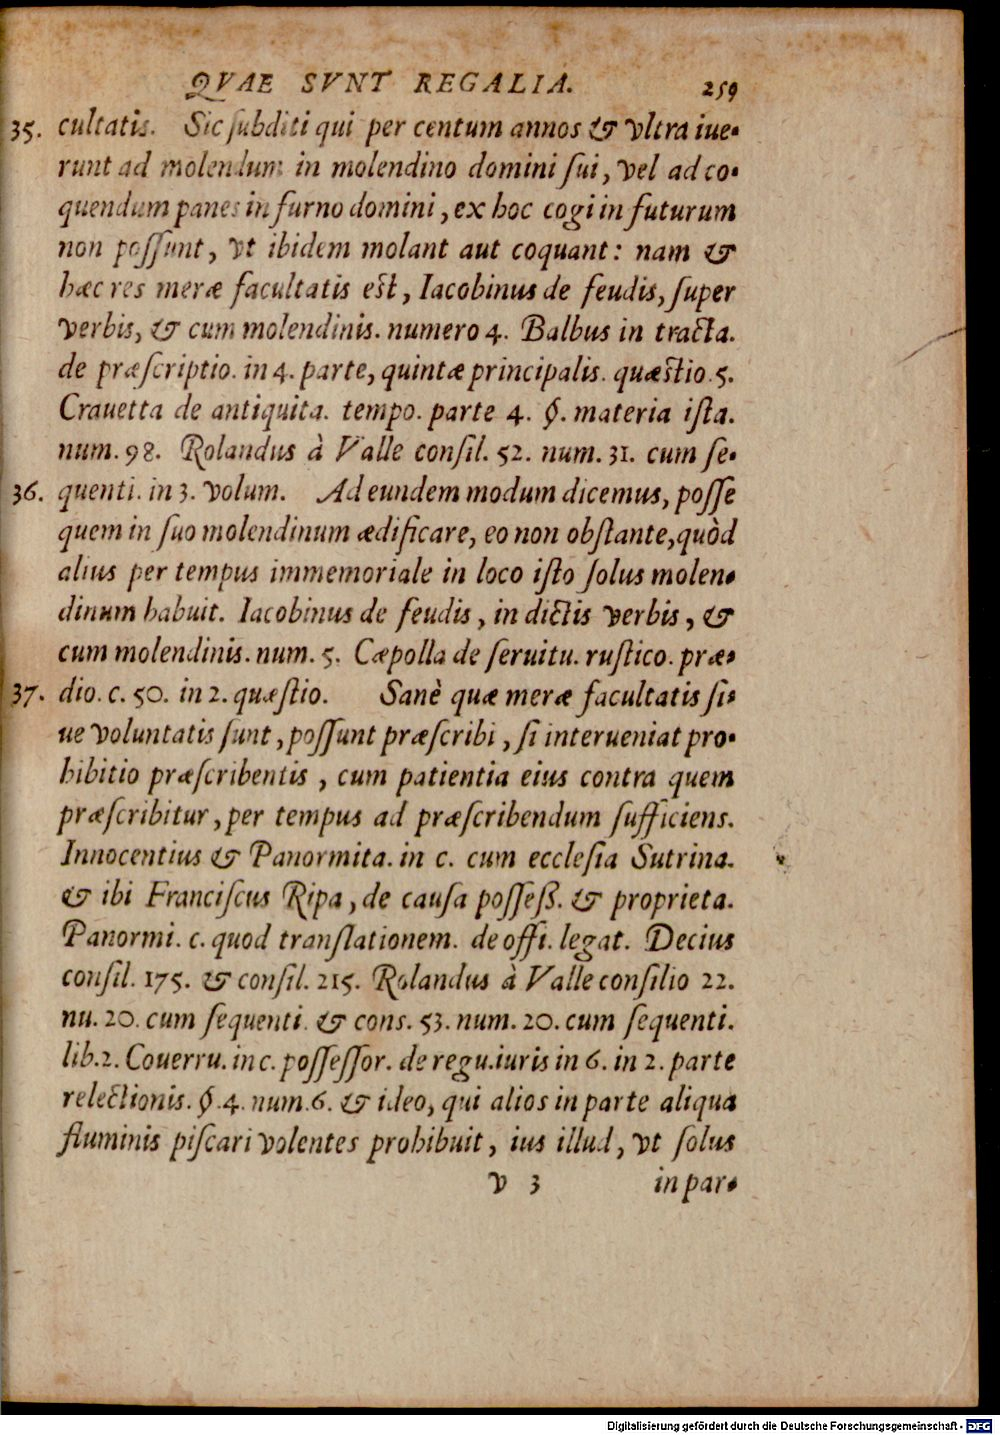 QVAE SVNT REGALIA. 259
35. cultatis. Sic ſubditi qui per centum annos & vltra iue-
runt ad molendum in molendino domini ſui, vel ad co-
quendum panes in furno domini, ex hoc cogi in futurum
non poſſunt, vt ibidem molant aut coquant: nam &
hæc res meræ facultatis eſt, Iacobinus de feudis, ſuper
verbis, & cum molendinis. numero 4. Balbus in tracta.
de præſcriptio. in 4. parte, quintæ principalis. quæſtio. 5.
Crauetta de antiquita. tempo. parte 4. §. materia iſta.
num. 98. Rolandus à Valle conſil. 52. num. 31. cum ſe-
36. quenti. in 3. volum. Ad eundem modum dicemus, poſſe
quem in ſuo molendinum ædificare, eo non obſtante, quòd
alius per tempus immemoriale in loco iſto ſolus molen-
dinum habuit. Iacobinus de feudis, in dictis verbis, &
cum molendinis. num. 5. Cæpolla de ſeruitu. ruſtico. præ-
37. dio. c. 50. in 2. quæſtio. Sanè quæ meræ facultatis ſi-
ue voluntatis ſunt, poſſunt præſcribi, ſi interueniat pro-
hibitio præſcribentis, cum patientia eius contra quem
præſcribitur, per tempus ad præſcribendum ſufficiens.
Innocentius & Panormita. in c. cum eccleſia Sutrina.
& ibi Franciſcus Ripa, de cauſa poſſeß. & proprieta.
Panormi. c. quod tranſlationem. de offi. legat. Decius
conſil. 175. & conſil. 215. Rolandus à Valle conſilio 22.
nu. 20. cum ſequenti. & cons. 53. num. 20. cum ſequenti.
lib. 2. Couerru. in c. poſſeſſor. de regu. iuris in 6. in 2. parte
relectionis. §. 4. num. 6. & ideo, qui alios in parte aliqua
fluminis piſcari volentes prohibuit, ius illud, vt ſolus
v 3 in par-
Digitalisierung gefördert durch die Deutsche Forschungsgemeinschaft - DFG